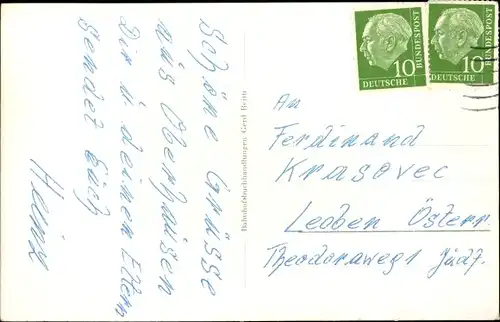 Schöne Grüsse
aus Oberhausen
Dir u deinen Eltern
sendet Euch
Heinz
Bahnhofsbuchhandlungen Gerd
10
DEUTSCHE
BUNDESPOST
10
DEUTSCHE
BUNDESPOST
An
Ferdinand
Krasovec
Leoben Österr
Theodorawegs